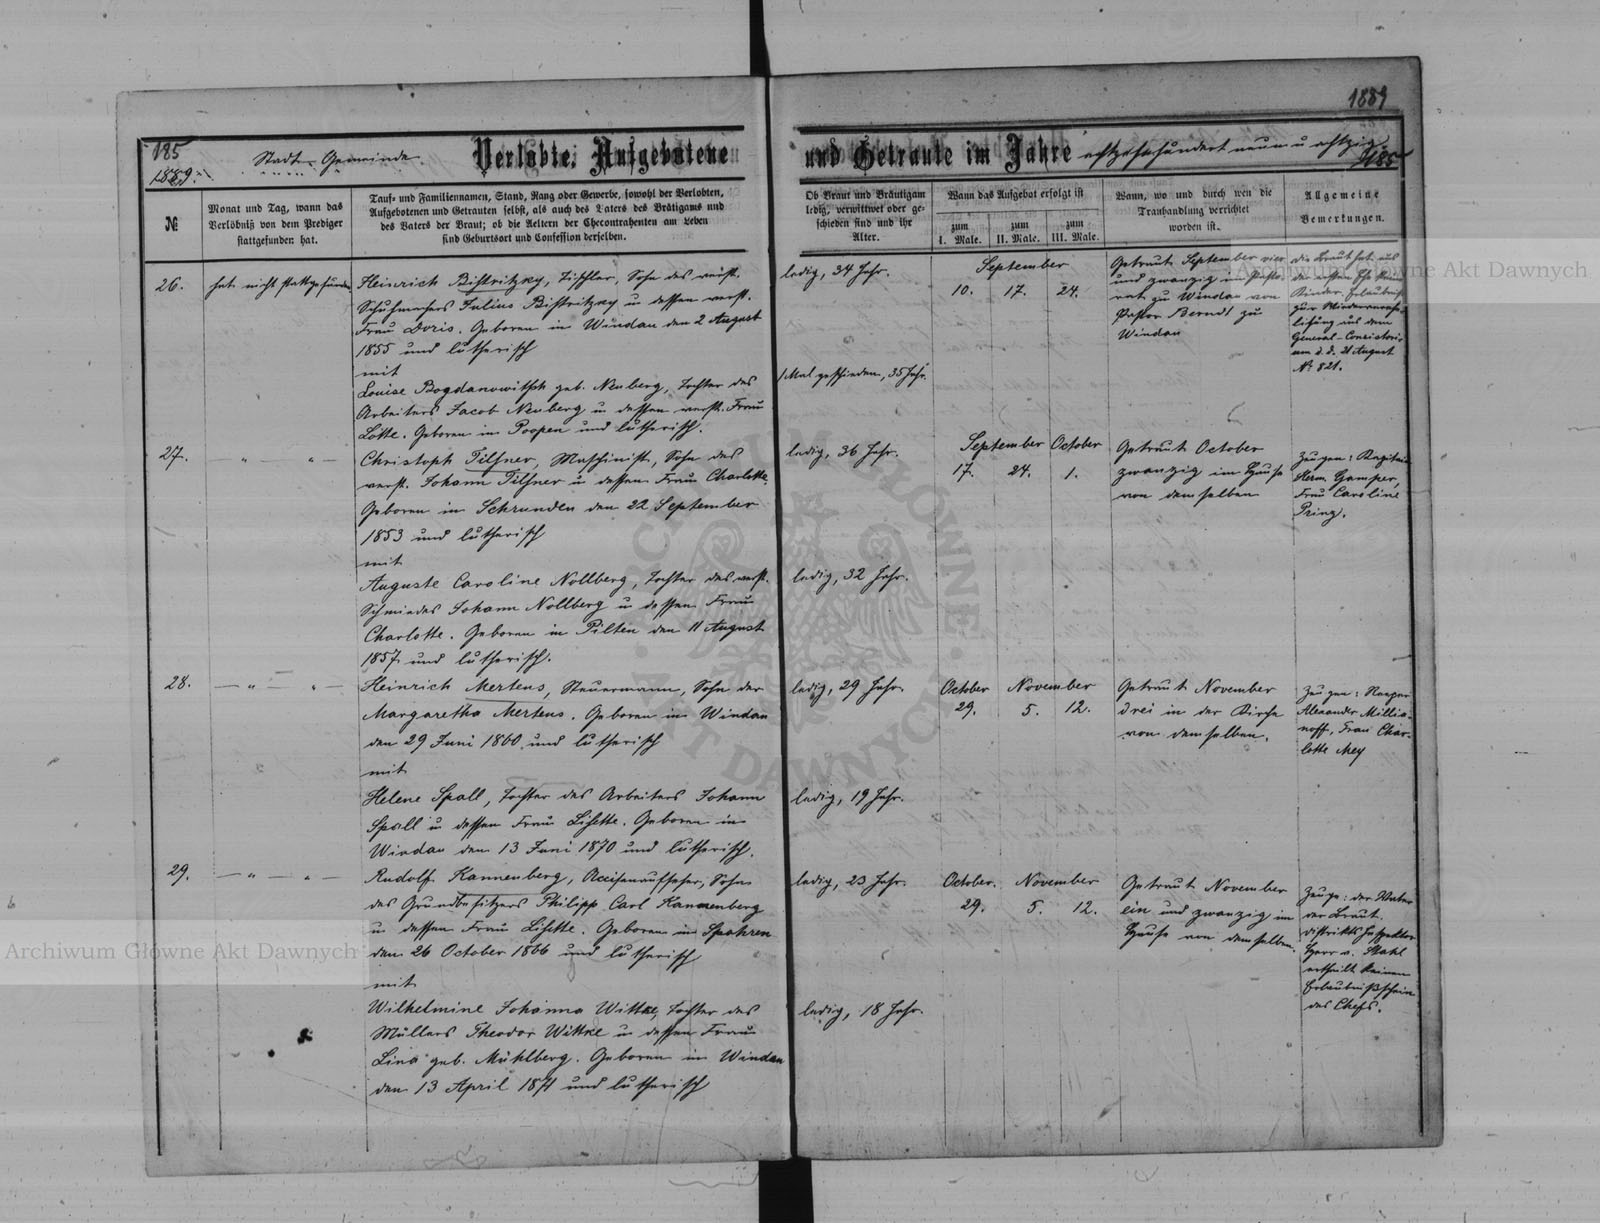 1889
185
1889.
Stadt-Gemeinde
Verlobte, Aufgebotene
und Getraute im Jahre achtzehnhundert neun u achtzig.
185
№
Monat und Tag, wann das
Verlöbniß von dem Prediger
stattgefunden hat.
Tauf- und Familiennamen, Stand, Rang oder Gewerbe, sowohl der Verlobten,
Aufgebotenen und Getrauten selbst, als auch des Vaters des Brätigams und
des Vaters der Braut; ob die Aeltern der Ehecontrahenten am Leben
sind Geburtsort und Confession derselben.
Ob Braut und Bräutigam
ledig, verwittwet oder ge-
schieden sind und ihr
Alter.
Wann das Aufgebot erfolgt ist
zum
I. Male.
zum
II. Male.
zum
III. Male.
Wann, wo und durch wen die
Trauhandlung verrichtet
worden ist.
Allgemeine
Bemerkungen.
26.
hat nicht stattgefunden
Heinrich Bistritzky, Tischler, Sohn des verst.
Schuhmachers Julius Bistritzky u dessen verst.
Frau Doris. Geboren in Windau den 2 August
1855 und lutherisch
mit
Louise Bogdanowitsch geb. Neuberg, Tochter des
Arbeiters Jacob Neuberg u dessen verst. Frau
Lotte. Geboren in Poopen und lutherisch.
ledig, 34 Jahr.
1 Mal geschieden, 35 Jahr.
September
10. 17. 24.
Getraut September vier
und zwanzig im Pasto-
rat zu Windau von
Pastor Berndt zu
Windau
Die Braut hat aus
der ersten Ehe keine
Kinder. Erlaubniß
zur Wiederverehe-
lichung aus dem
General-Consistori-
um d. d. 21 August
№ 821.
27.
— " — " —
Christoph Tilsner, Maschinist, Sohn des
verst. Johann Tilsner u dessen Frau Charlotte.
Geboren in Schrunden den 22 September
1853 und lutherisch
mit
Auguste Caroline Nollberg, Tochter des verst.
Schmiedes Johann Nollberg u dessen Frau
Charlotte. Geboren in Pilten den 11 August
1857 und lutherisch.
ledig, 36 Jahr.
ledig, 32 Jahr.
September October
17. 24. 1.
Getraut October
zwanzig im Hause
von demselben
Zeugen: Kapitain
Herm. Gamper,
Frau Caroline
Prinz.
28.
— " — " —
Heinrich Mertens, Steuermann, Sohn der
Margaretha Mertens. Geboren in Windau
den 29 Juni 1860 und lutherisch
mit
Helene Spall, Tochter des Arbeiters Johann
Spall u dessen Frau Lisette. Geboren in
Windau den 13 Juni 1870 und lutherisch.
ledig, 29 Jahr.
ledig, 19 Jahr.
October November
29. 5. 12.
Getraut November
drei in der Kirche
von demselben.
Zeugen:
Alexander Millia-
noff, Frau Char-
lotte Mey
29.
— " — " —
Rudolf Kannenberg, Acciseaufseher, Sohn
des Grundbesitzers Philipp Carl Kannenberg
u dessen Frau Lisette. Geboren in Spahren
den 26 October 1866 und lutherisch
mit
Wilhelmine Johanna Wittke, Tochter des
Müllers Theodor Wittke u dessen Frau
Lina geb. Mühlberg. Geboren in Windau
den 13 April 1871 und lutherisch
ledig, 23 Jahr.
ledig, 18 Jahr.
October. November
29. 5. 12.
Getraut November
ein und zwanzig im
Hause von demselben.
Zeuge: der Vater
der Braut.
Distrikts Inspektor
Herr v. Stahl
ertheilt keinen
Erlaubnißschein
des Chefs.
Archiwum Główne Akt Dawnych
Archiwum Główne Akt Dawnych
ARCHIWUM GŁÓWNE AKT DAWNYCH